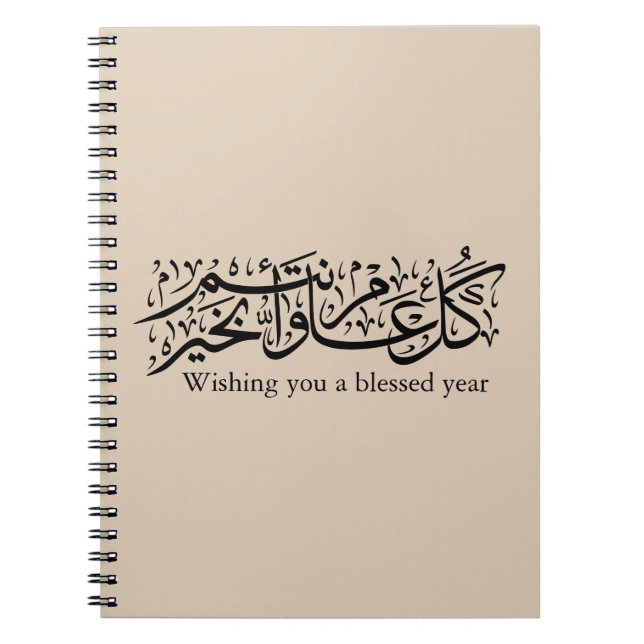 كل عام وأنتم بخير
Wishing you a blessed year